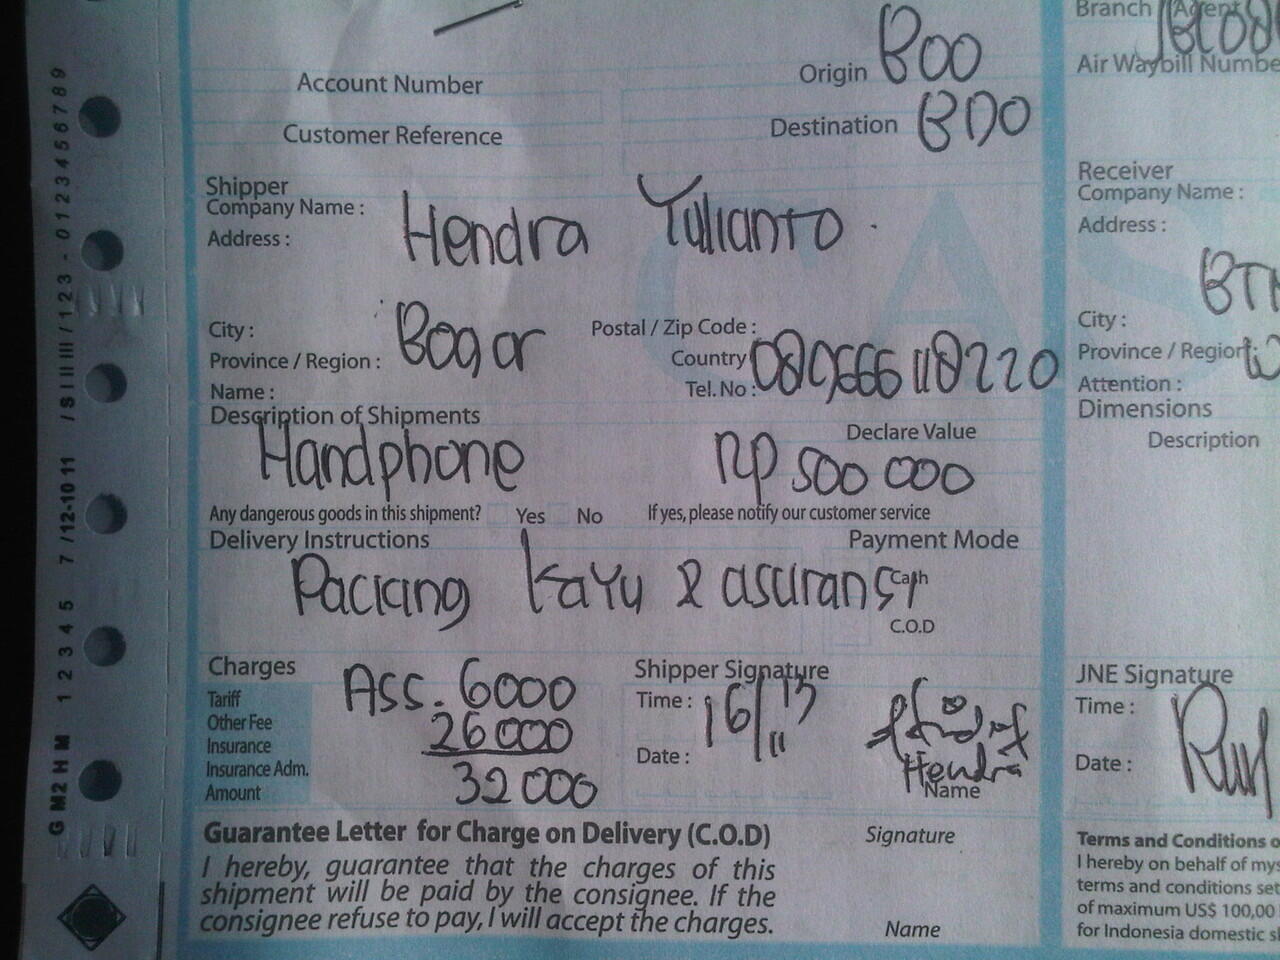 Account Number
Origin BOO
Customer Reference
Destination BDO
Shipper
Company Name : Hendra Yulianto
Address :
City : Bogor
Postal / Zip Code :
Province / Region :
Country
Name :
Tel. No : 089666118220
Description of Shipments
Handphone
Declare Value
Rp 500 000
Any dangerous goods in this shipment? Yes No If yes, please notify our customer service
Delivery Instructions
Packing kayu & asuransi
Payment Mode
Cash
C.O.D
Charges
Tariff
Other Fee
Insurance
Insurance Adm.
Amount
Ass. 6000
26000
32000
Shipper Signature
Time : 16/11 13
Date :
Hendra
Name
Guarantee Letter for Charge on Delivery (C.O.D)
I hereby, guarantee that the charges of this
shipment will be paid by the consignee. If the
consignee refuse to pay, I will accept the charges.
Signature
Name
Branch / Agent
Air Waybill Numbe
Receiver
Company Name :
Address :
City :
Province / Region
Attention :
Dimensions
Description
JNE Signature
Time :
Date :
Terms and Conditions o
I hereby on behalf of mys
terms and conditions set
of maximum US$ 100,00
for Indonesia domestic s
G M2 H M 1 2 3 4 5 7 /12-10 11 / S I II III / 1 2 3 - 0 1 2 3 4 5 6 7 8 9